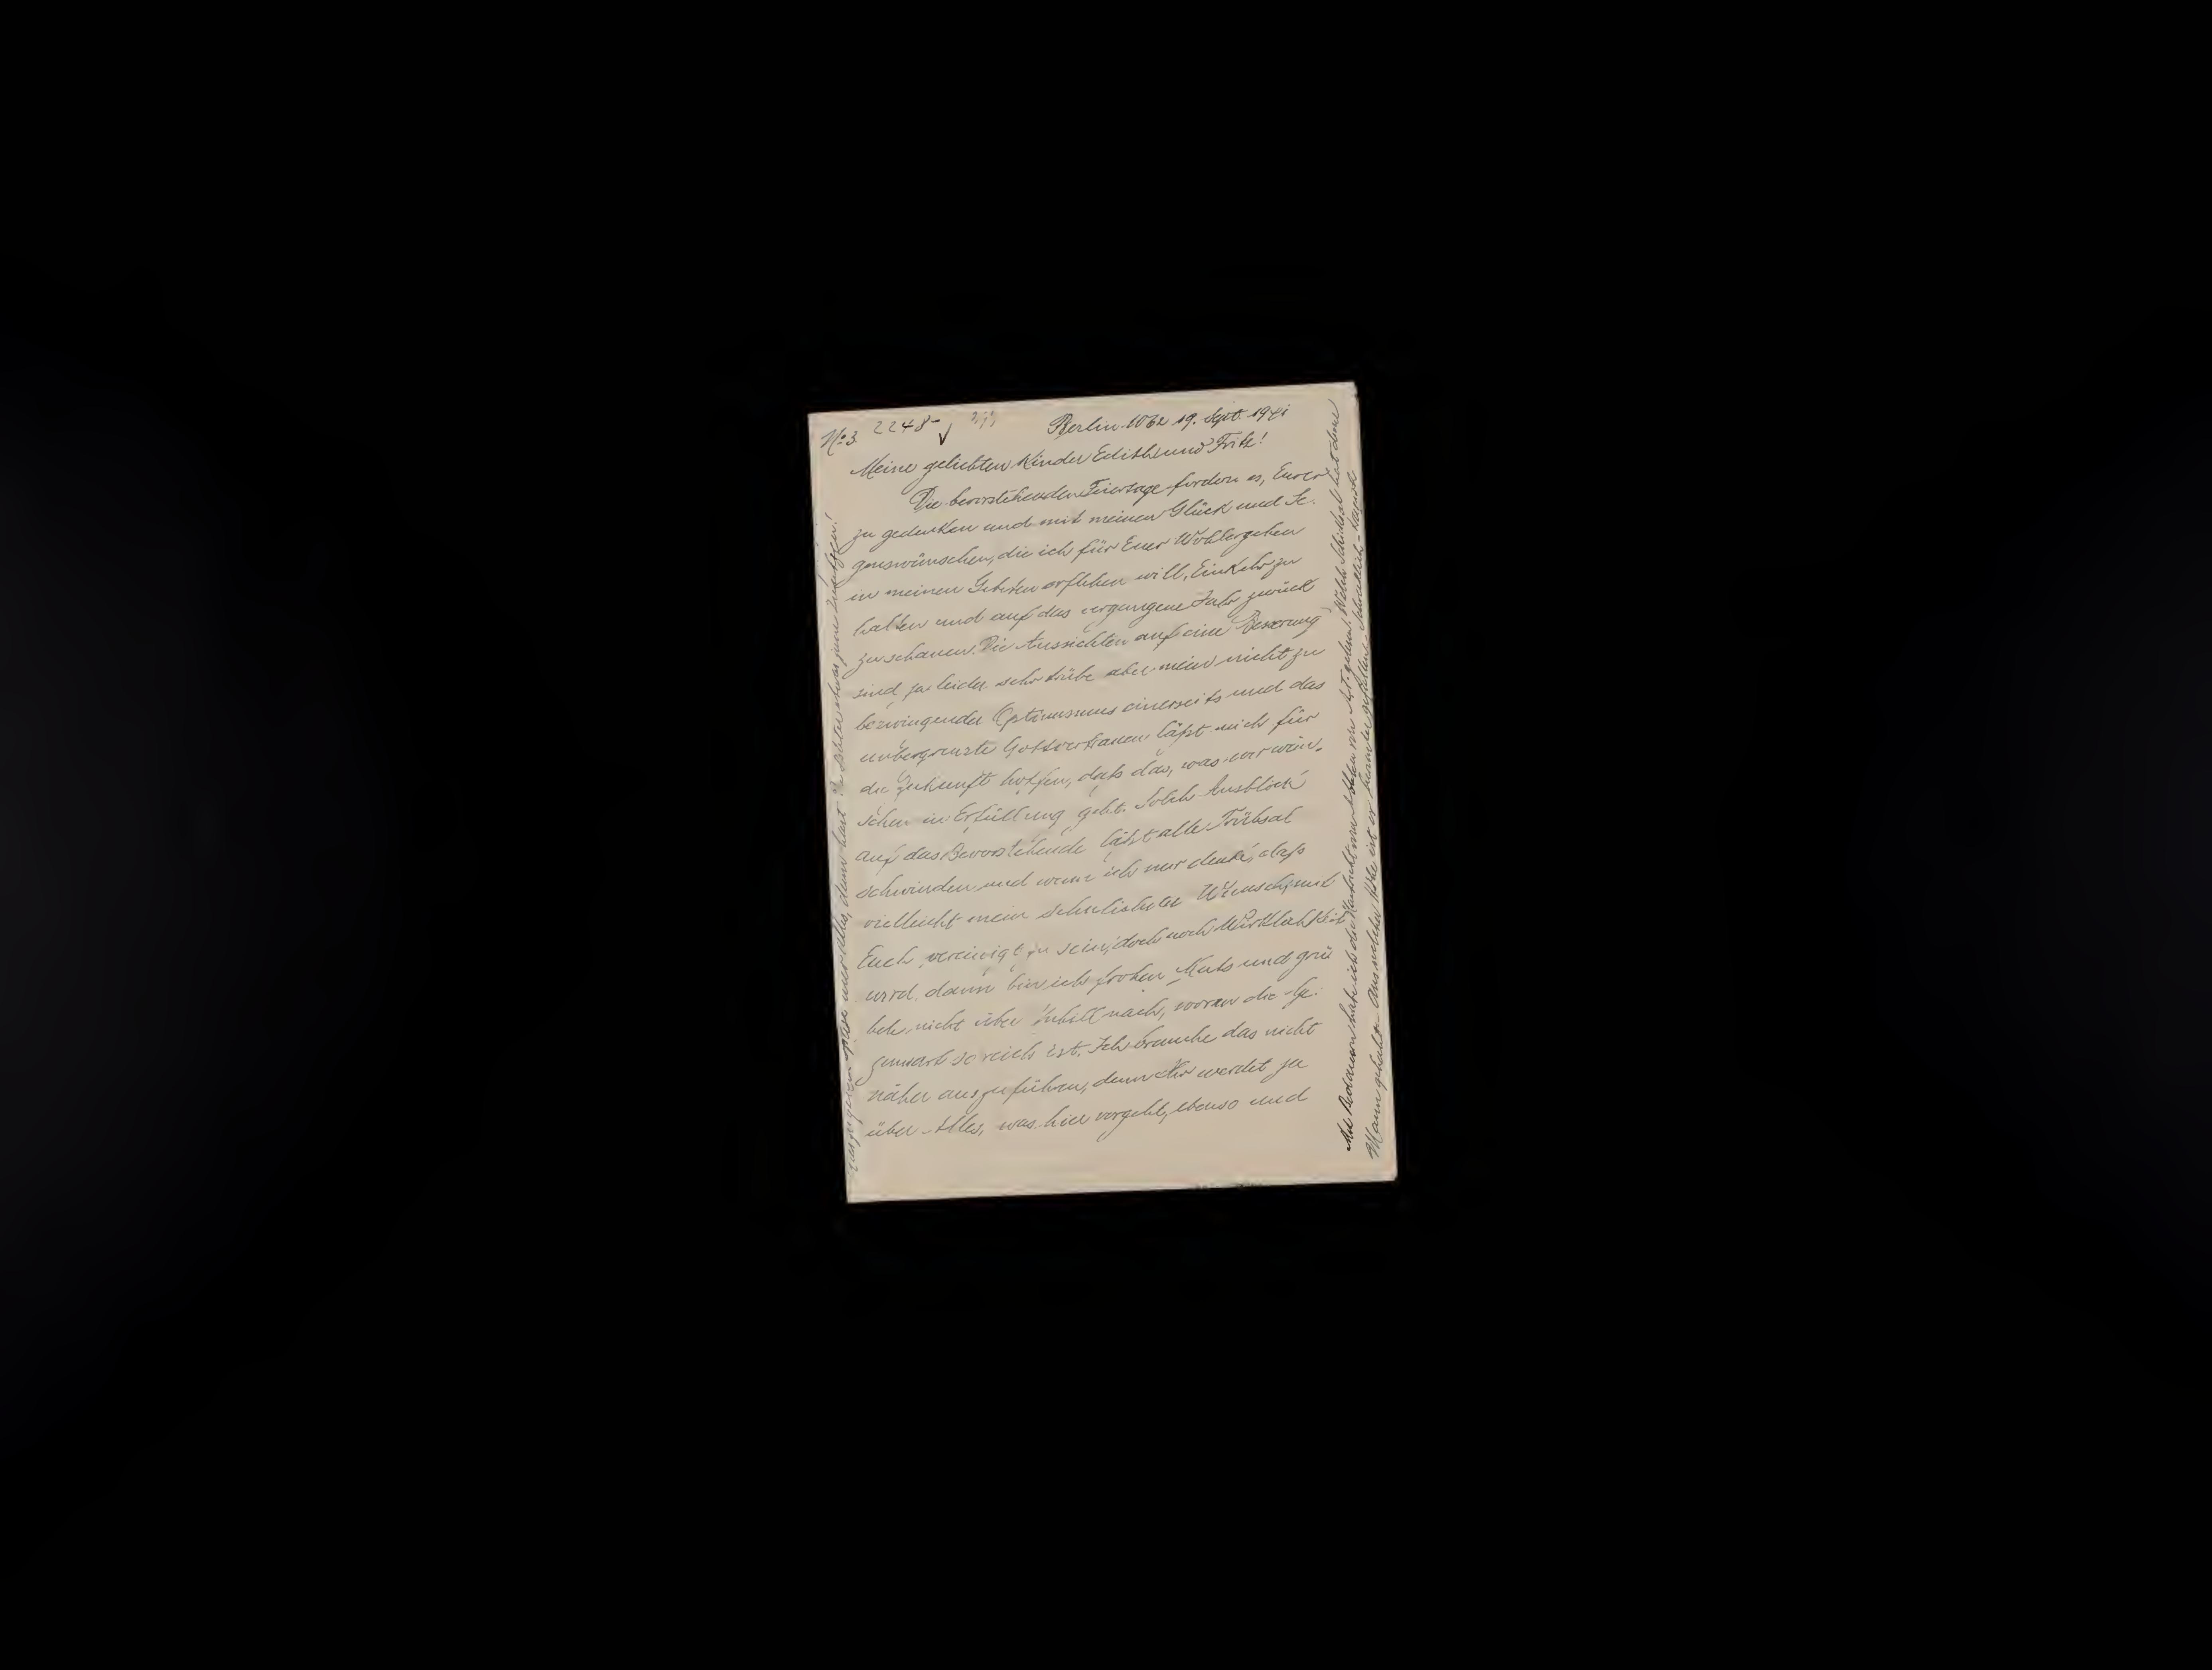 No 3. 2248- Berlin 19. Sept. 1941
Meine geliebten Kinder Edith und Fritz!
Die bevorstehenden Feiertage fordern es, Eurer
zu gedenken und mit meinen Glück und Se-
genswünschen, die ich für Euer Wohlergehen
in meinen Gebeten erflehen will, Einkehr zu
halten und auf das vergangene Jahr zurück
zu schauen. Die Aussichten auf eine Besserung
sind ja leider sehr trübe aber mein nicht zu
bezwingender Optimismus einerseits und das
unbegrenzte Gottvertrauen läßt mich für
die Zukunft hoffen, daß das, was wir wün-
schen in Erfüllung geht. Solch Ausblick
auf das Bevorstehende läßt alle Trübsal
schwinden und wenn ich nur denke, daß
vielleicht mein sehnlichster Wunsch, mit
Euch vereinigt zu sein, doch noch Wirklichkeit
wird, dann bin ich frohen Muts und grü
bele nicht über nach, woran die Ge-
genwart so reich ist. Ich brauche das nicht
näher auszuführen, denn Ihr werdet ja
über Alles, was hier vorgeht, ebenso und
Mit Bedauern habe ich die Nachricht von gelesen! Welch Schicksal hat diese
Mann gehabt. Aus welcher Höhe ist er herunter gefallen. Schrecklich